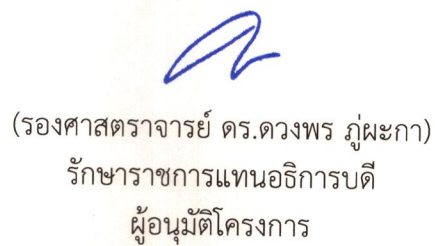 (รองศาสตราจารย์ ดร.ดวงพร ภู่ผะกา)
รักษาราชการแทนอธิการบดี
ผู้อนุมัติโครงการ